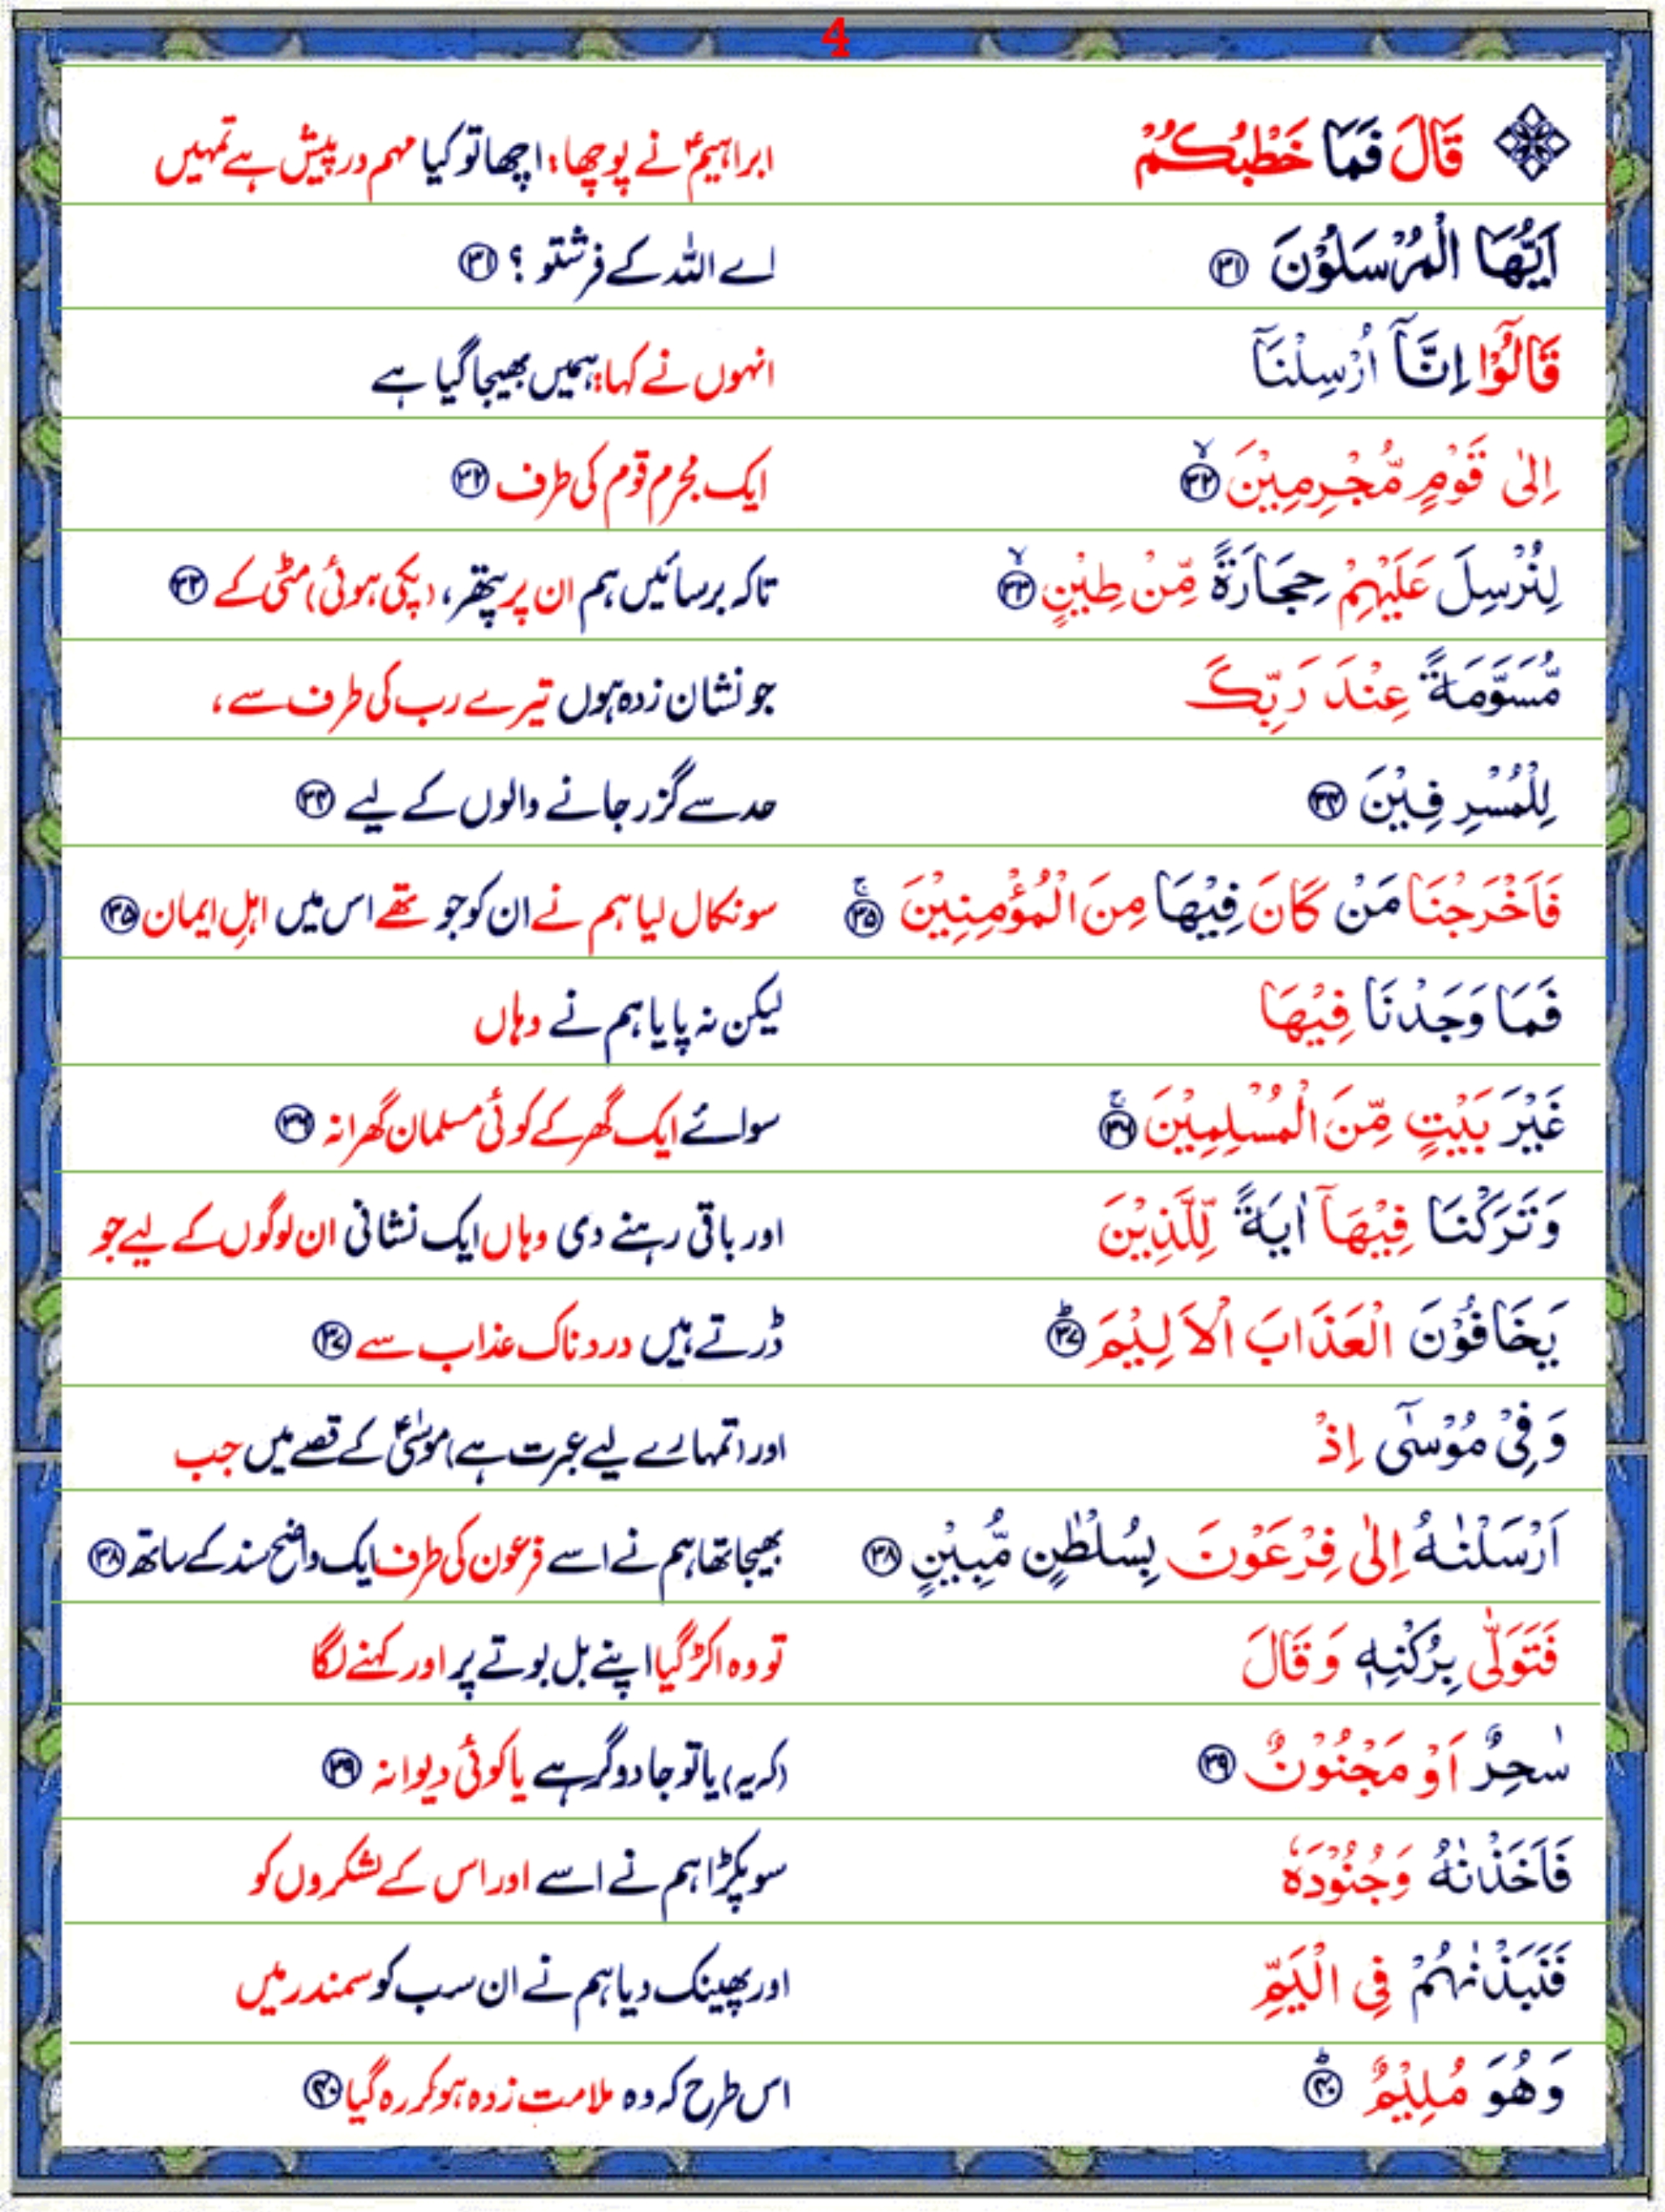 4
قَالَ فَمَا خَطْبُكُمْ ابراہیمؑ نے پوچھا: اچھا تو کیا مہم درپیش ہے تمہیں
اَیُّهَا الْمُرْسَلُوْنَ ﴿۳۱﴾ اے اللہ کے فرشتو ؟ ﴿۳۱﴾
قَالُوْۤا اِنَّاۤ اُرْسِلْنَاۤ انہوں نے کہا: ہمیں بھیجا گیا ہے
اِلٰی قَوْمٍ مُّجْرِمِیْنَ ۙ﴿۳۲﴾ ایک مجرم قوم کی طرف ﴿۳۲﴾
لِنُرْسِلَ عَلَیْهِمْ حِجَارَةً مِّنْ طِیْنٍ ۙ﴿۳۳﴾ تاکہ برسائیں ہم ان پر پتھر، (پکی ہوئی) مٹی کے ﴿۳۳﴾
مُّسَوَّمَةً عِنْدَ رَبِّكَ جو نشان زدہ ہوں تیرے رب کی طرف سے،
لِلْمُسْرِفِیْنَ ﴿۳۴﴾ حد سے گزر جانے والوں کے لیے ﴿۳۴﴾
فَاَخْرَجْنَا مَنْ كَانَ فِیْهَا مِنَ الْمُؤْمِنِیْنَ ۚ﴿۳۵﴾ سو نکال لیا ہم نے ان کو جو تھے اس میں اہلِ ایمان ﴿۳۵﴾
فَمَا وَجَدْنَا فِیْهَا لیکن نہ پایا ہم نے وہاں
غَیْرَ بَیْتٍ مِّنَ الْمُسْلِمِیْنَ ۚ﴿۳۶﴾ سوائے ایک گھر کے کوئی مسلمان گھرانہ ﴿۳۶﴾
وَتَرَكْنَا فِیْهَاۤ اٰیَةً لِّلَّذِیْنَ اور باقی رہنے دی وہاں ایک نشانی ان لوگوں کے لیے جو
یَخَافُوْنَ الْعَذَابَ الْاَلِیْمَ ؕ﴿۳۷﴾ ڈرتے ہیں دردناک عذاب سے ﴿۳۷﴾
وَفِیْ مُوْسٰۤی اِذْ اور (تمہارے لیے عبرت ہے) موسیٰؑ کے قصے میں جب
اَرْسَلْنٰهُ اِلٰی فِرْعَوْنَ بِسُلْطٰنٍ مُّبِیْنٍ ﴿۳۸﴾ بھیجا تھا ہم نے اسے فرعون کی طرف ایک واضح سند کے ساتھ ﴿۳۸﴾
فَتَوَلّٰی بِرُكْنِهٖ وَقَالَ تو وہ اکڑ گیا اپنے بل بوتے پر اور کہنے لگا
سٰحِرٌ اَوْ مَجْنُوْنٌ ﴿۳۹﴾ (کہ یہ) یا تو جادوگر ہے یا کوئی دیوانہ ﴿۳۹﴾
فَاَخَذْنٰهُ وَجُنُوْدَهٗ سو پکڑا ہم نے اسے اور اس کے لشکروں کو
فَنَبَذْنٰهُمْ فِی الْیَمِّ اور پھینک دیا ہم نے ان سب کو سمندر میں
وَهُوَ مُلِیْمٌ ؕ﴿۴۰﴾ اس طرح کہ وہ ملامت زدہ ہو کر رہ گیا ﴿۴۰﴾